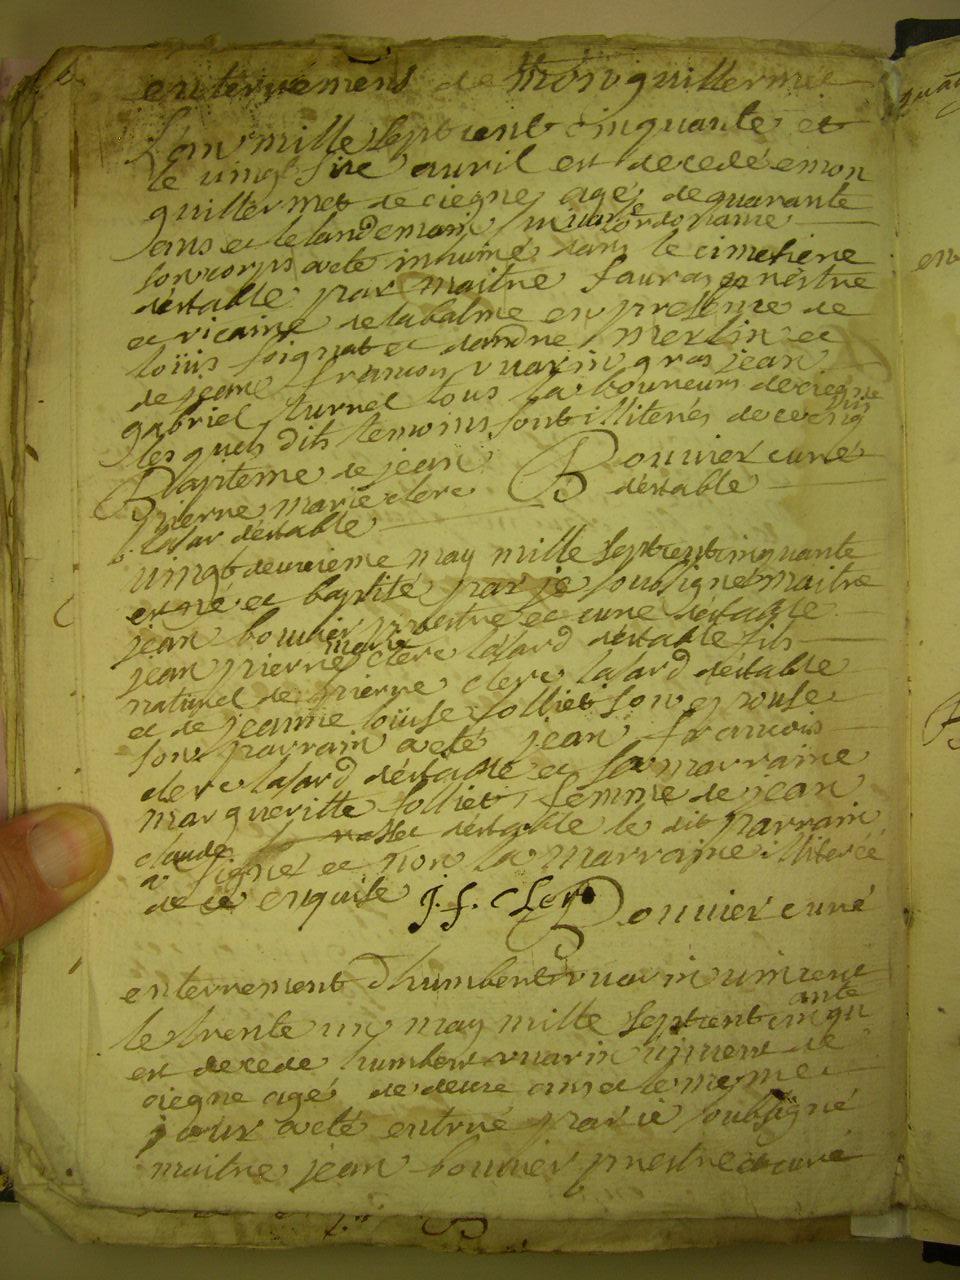 enterrement de mon guillermet
L'an mille sept cent cinquante et
le vingt sixe avril est decedé emon
guillermet de ciegne agé de quarante
ans et le landemain
son corps a eté inhumé dans le cimetiere
déstable par maitre favraz prestre
et vicaire de la balme en presence de
loüis soignat et dandré merlin et
de jean françon vuarin gros jean
gabriel turnel tous laboureurs de ciegne
lesquels dits temoins sont illiterés de ce enquis
Baptéme de jean
Bouvier curé
pierre marie clerc
déstable
lasar déstable
vingt deuxieme may mille sept cent cinquante
est né et baptité par je soubsigné maitre
jean bouvier prestre et curé déstable
jean pierre marie clerc lasard déstable fils
naturel de pierre clerc lasard déstable
et de jeanne loüise solliet son epouse
son parrain a eté jean françois
clerc lasard déstable et sa marraine
margueritte solliet femme de jean
claude déstable le dit parrain
a signé et non la marraine illiterée
de ce enquise J. f. Cler Bouvier curé
enterrement d'humbert vuarin vincent
le trente un may mille sept cent cinquante
est decede humbert vuarin vincent de
ciegne agé de deux ans et le mesme
jour a eté entrré par je soubsigné
maitre jean bouvier prestre et curé